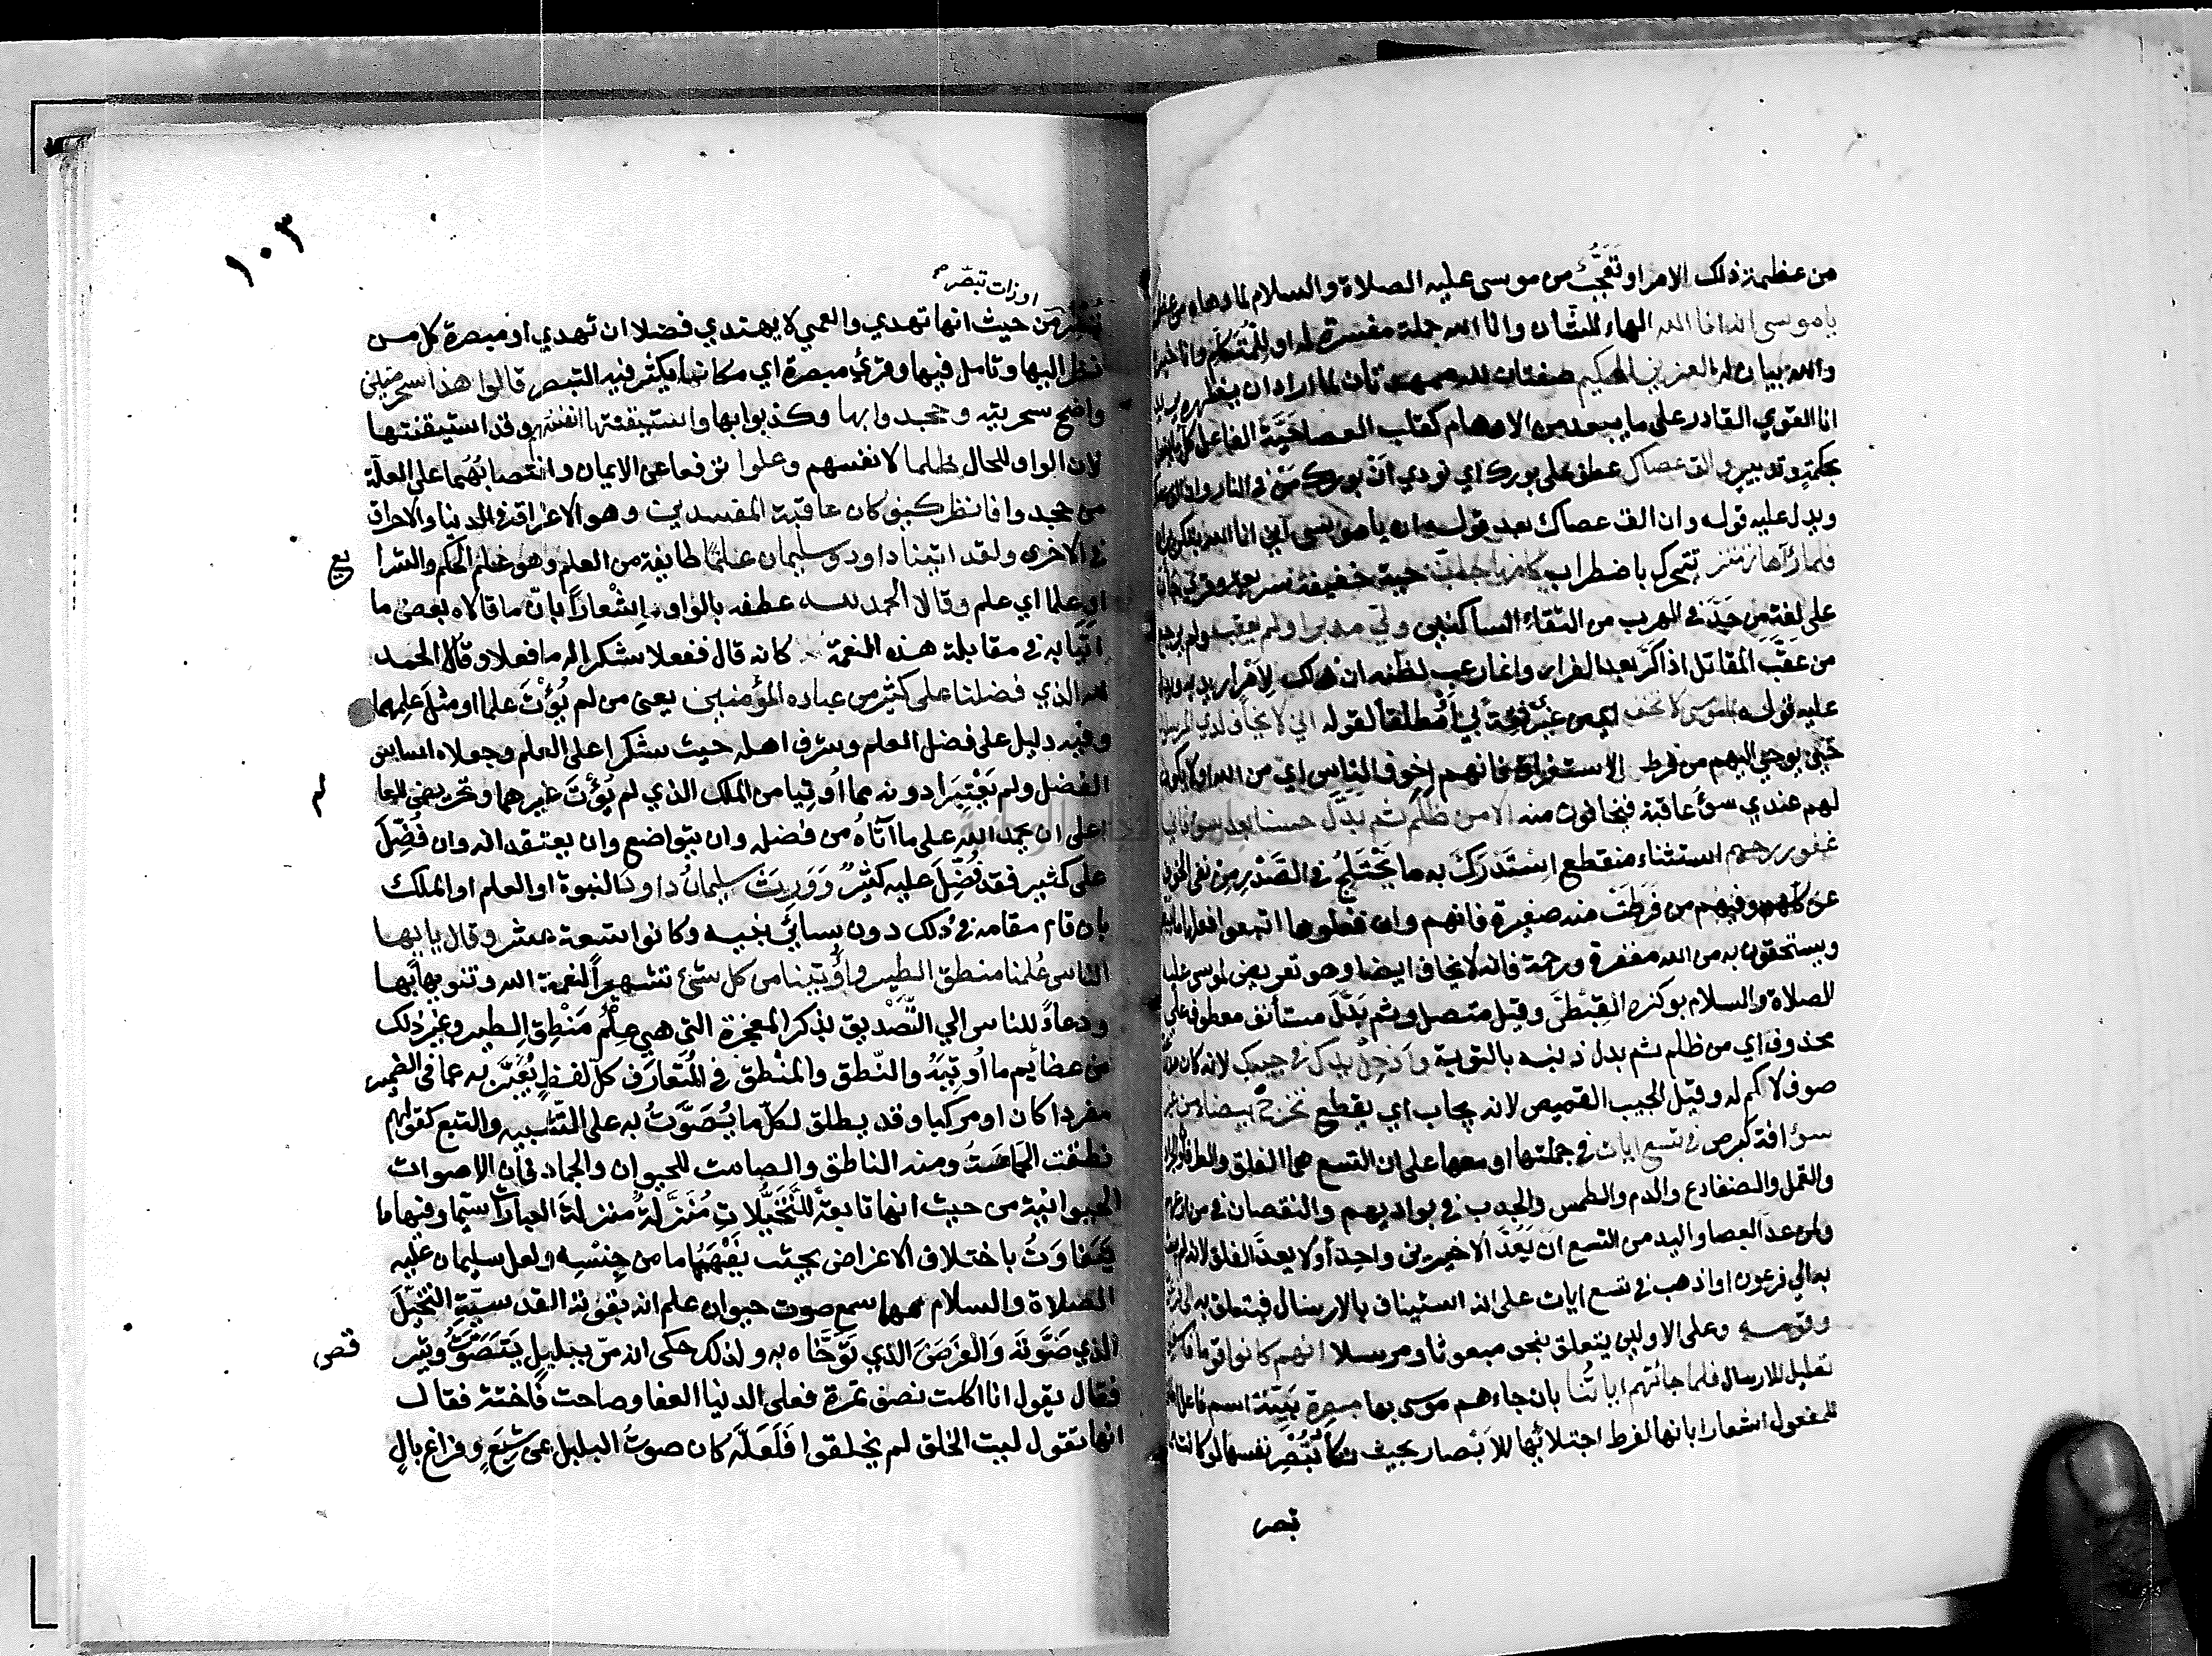 من عظمة ذلك الامر او تعجب من موسى عليه الصلاة والسلام لما دهاه من عظمته
يا موسى انه انا الله الهاء للشان وانا الله جملة مفسرة له او للمتكلم وانا خبره
والله بيان له العزيز الحكيم صفتان لله ممهدتان لما اراد ان يظهره يريد
انا القوي القادر على ما يبعد من الاوهام كقلب العصا حيّة الفاعل كل ما افعله
بحكمة وتدبير والق عصاك عطف على بورك اي نودي ان بورك من في النار وان الق عصاك
ويدل عليه قوله وان الق عصاك بعد قوله ان يا موسى اني انا الله بتكرير ان
فلما رآها تهتز تتحرك باضطراب كانها جان حية خفيفة سريعة وقرئ جأن
على لغة من جدّ في الهرب من التقاء الساكنين ولى مدبرا ولم يعقب ولم يرجع
من عقّب المقاتل اذا كرّ بعد الفرار وانما رعب لظنه ان ذلك لامر اريد به ويدل
عليه قوله يا موسى لا تخف اي من غيري ثقة بي او مطلقا لقوله اني لا يخاف لدي المرسلون
حين يوحى اليهم من فرط الاستغراق فانهم اخوف الناس اي من الله او لا يكون
لهم عندي سوء عاقبة فيخافون منه الا من ظلم ثم بدّل حسنا بعد سوء فاني
غفور رحيم استثناء منقطع استدرك به ما يختلج في الصدر من نفي الخوف
عن كلهم وفيهم من فرطت منه صغيرة فانهم وان فعلوها اتبعوا فعلها ما يبطلها
ويستحقون به من الله مغفرة ورحمة فانه لا يخاف ايضا وهو تعريض لموسى عليه
الصلاة والسلام بوكزه القبطي وقيل متصل وثم بدّل مستأنف معطوف على
محذوف اي من ظلم ثم بدل ذنبه بالتوبة وادخل يدك في جيبك لانه كان مدرعة
صوف لا كم له وقيل الجيب القميص لانه يجاب اي يقطع تخرج بيضاء من غير
سوء افة كبرص في تسع ايات في جملتها او معها على ان التسع هي الفلق والطوفان والجراد
والقمل والضفادع والدم والطمس والجدب في بواديهم والنقصان في مزارعهم
ولمن عدّ العصا واليد من التسع ان يعدّ الاخيرين واحدا ولا يعدّ الفلق لانه لم يبعث
به الى فرعون او اذهب في تسع ايات على انه استيناف بالارسال فيتعلق به الى فرعون
وقومه وعلى الاولين يتعلق بنحو مبعوثا ومرسلا انهم كانوا قوما فاسقين
تعليل للارسال فلما جائتهم اياتنا بان جاءهم موسى بها مبصرة بيّنة اسم فاعل اطلق
للمفعول اشعارا بانها لفرط اجتلائها للابصار بحيث تكاد تُبْصِر نفسها لو كانت
تبصر
١٠٣
او ذات تبصّر
تبصر من حيث انها تهدي والعمي لا يهتدي فضلا ان تهدي او مبصرة كل من
نظر اليها وتامل فيها وقرئ مبصرة اي مكانا يكثر فيه التبصر قالوا هذا سحر مبين
واضح سحريته وجحدوا بها وكذبوا بها واستيقنتها انفسهم وقد استيقنتها
لان الواو للحال ظلما لانفسهم وعلوا ترفعا عن الايمان وانتصابهما على العلة
من جحدوا فانظر كيف كان عاقبة المفسدين وهو الاغراق في الدنيا والاحراق
في الاخرى ولقد اتينا داود وسليمان علمًا طايفة من العلم وهو علم الحكم والشرا
يع
او علما اي علم وقالا الحمد لله عطفه بالواو اشعارًا بانّ ما قالاه بعض ما
اتيا به في مقابلة هذه النعمة كانه قال ففعلا شكرا له ما فعلا وقالا الحمد
لله الذي فضلنا على كثير من عباده المؤمنين يعني من لم يُؤْتَ علما او مثل علمهما
وفيه دليل على فضل العلم وشرف اهله حيث شكرا على العلم وجعلاه اساس
الفضل ولم يعتبرا دونه مما اُوتيا من الملك الذي لم يُؤْتَ غيرهما وتحريض للعا
لم
على ان يحمد الله على ما آتاهُ من فضله وان يتواضع وان يعتقد انه وان فُضّل
على كثير فقد فُضّل عليه كثير وَوَرِثَ سليمانُ داودَ النبوة او العلم او الملك
بان قام مقامه في ذلك دون سائر بنيه وكانوا تسعة عشر وقال يا ايها
الناس عُلمنا منطق الطير واُوتينا من كل شئ تشهيرًا لنعمة الله وتنويها بها
ودعاءً للناس الي التّصْديق بذكر المعجزة التى هي علمُ مَنْطِق الطير وغير ذلك
من عظايم ما اُوتيَهُ والنّطق والمنْطق في المُتَعارَف كلّ لفظٍ يُعَبَّر به عما في الضمير
مفردا كان او مركبا وقد يطلق لكلّ ما يُصَوَّتُ به على التّشبيه والتبع كقولهم
نطقت الحمامةُ ومنه الناطق والصامت للحيوان والجماد فان الاصوات
الحيوانية من حيث انها تابعة للتخيّلاتِ مُنَزَّلةٌ منزلةَ العبارات سيّما وفيها ما
يَتَفاوَتُ باختلاف الاغراض بحيث يَفْهَمُها ما من جِنْسِه ولعل سليمان عليه
الصلاة والسلام مهما سمع صوت حيوان علم انه بقوته القدسيّة التخيّلَ
الذي صَوَّتَه وَالغَرَضَ الذي تَوَخّاه به ولذلك حكى انه مرّ ببلبلٍ يَتَصَوّتُ ويتر
قص
فقال يقول انا اكلت نصف تمرة فعلى الدنيا العفا وصاحت فاختة فقال
انها تقول ليت الخلق لم يخلقوا فَلَعَلّه كان صوتُ البلبل عن شِبَعٍ وفراغِ بالٍ